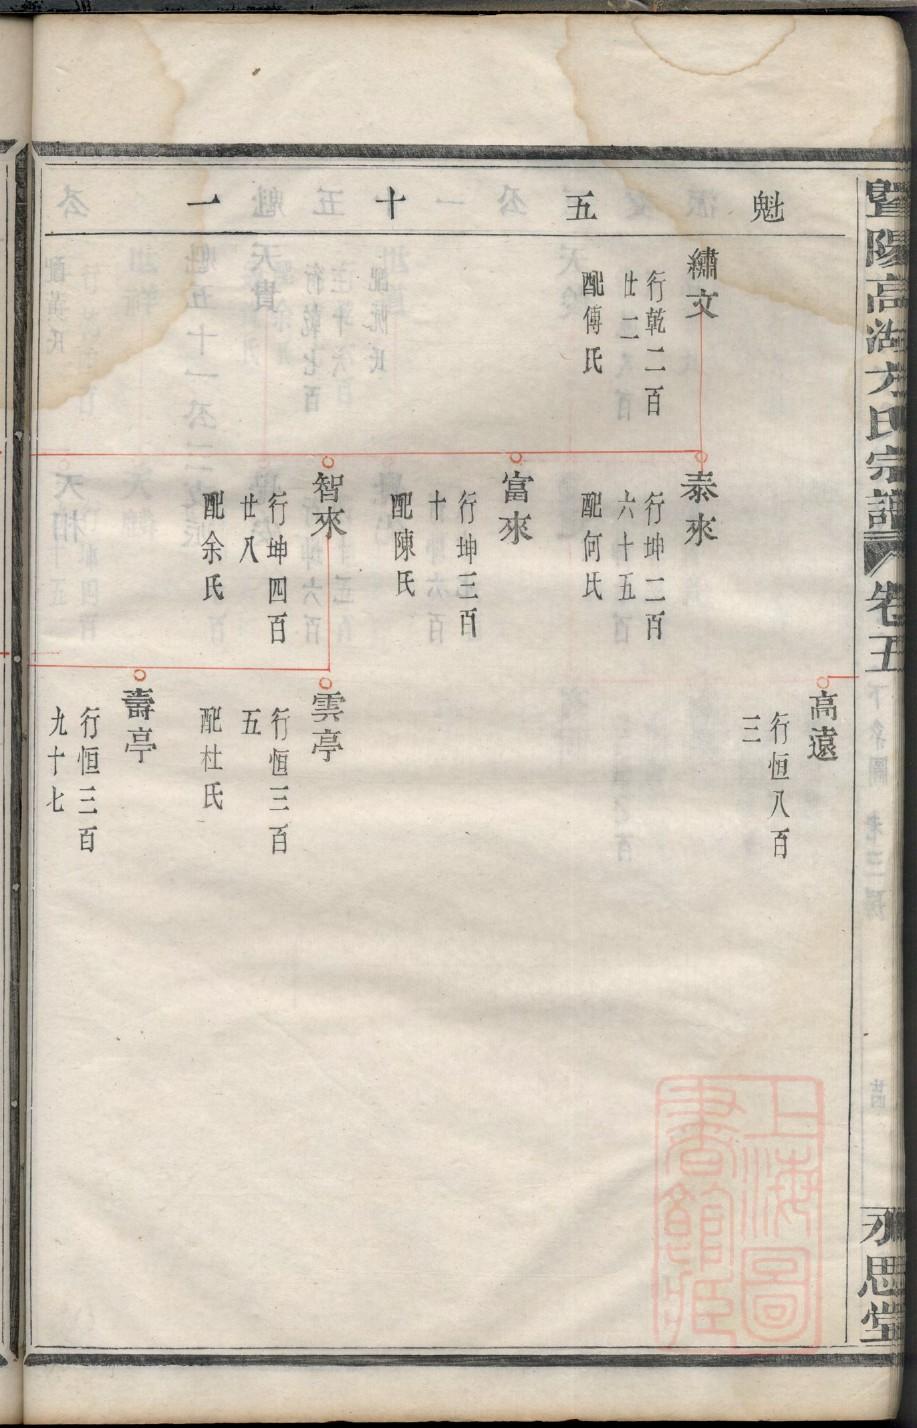 暨陽高湖方氏宗譜
卷五
永思堂
魁五十一
繡文
行乾二百
廿二
配傅氏
泰來
行坤二百
六十五
配何氏
富來
行坤三百
十
配陳氏
智來
行坤四百
廿八
配余氏
高遠
行恒八百
三
雲亭
行恒三百
五
配杜氏
壽亭
行恒三百
九十七
上海圖
書館藏